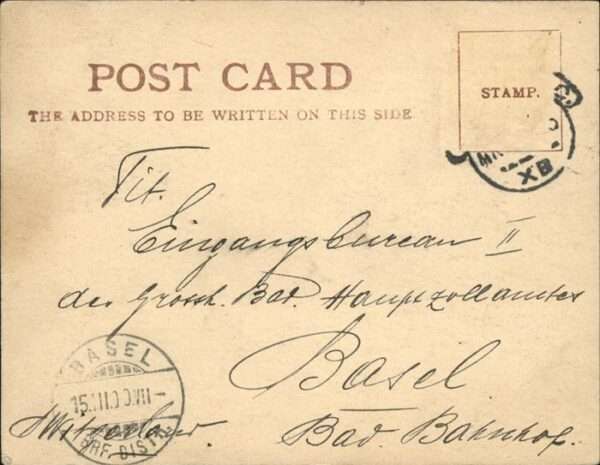 POST CARD
THE ADDRESS TO BE WRITTEN ON THIS SIDE
STAMP.
XB
Tit.
Eingangsbureau II
des Grossh. Bad. Hauptzollamtes
Basel
Switzerland. Bad. Bahnhof.
BASEL
BRF. DIST.